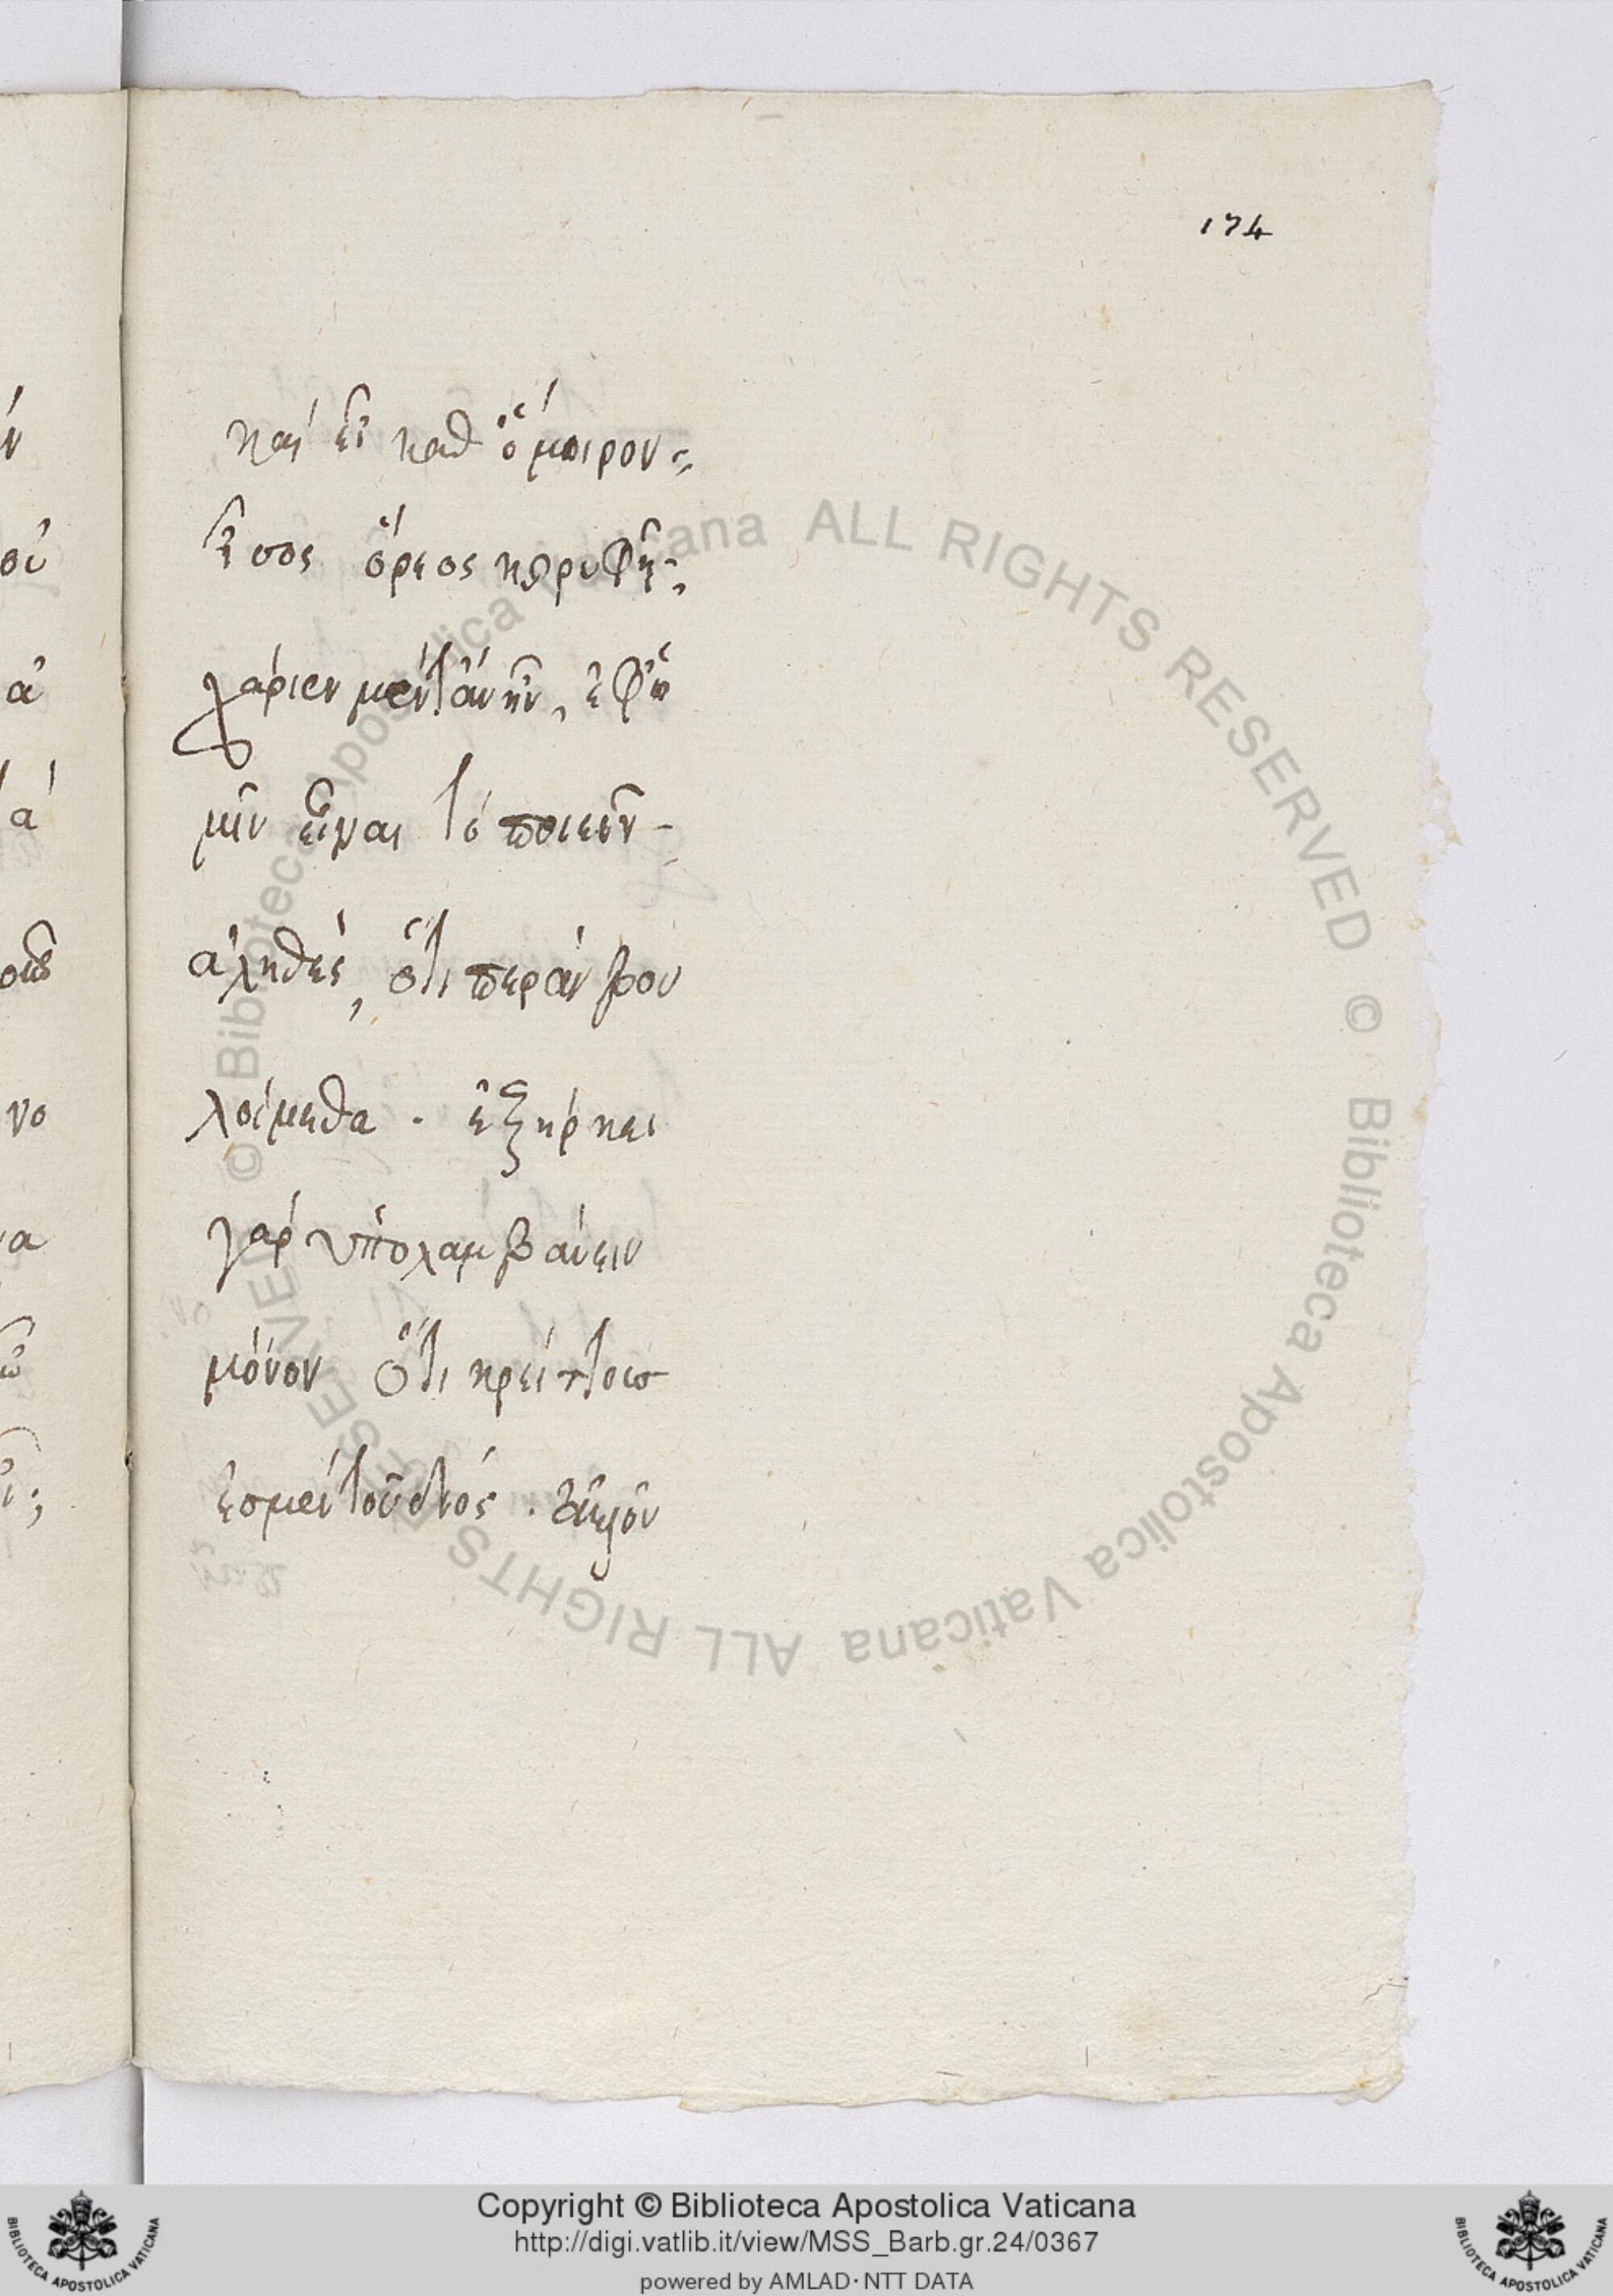 174
καὶ εἰ καθ ὅμοιρον
ἐπος ὄρεος κορυφῆς
χάριεν μεντἂν ἦν, ἐφ ἡ
μῖν εἶναι τὸ ποιεῖν
ἀληθὲς, ὅτι περ ἂν βου
λοίμεθα . ἐξήρκει
γὰρ ὑπολαμβάνειν
μόνον ὅτι κρείττους
ἐσμὲν τοῦ διός .
ν
οὐ
ἀ
ά
νο
α
© Biblioteca Apostolica Vaticana ALL RIGHTS RESERVED © Biblioteca Apostolica Vaticana ALL RIGHTS RESERVED
Copyright © Biblioteca Apostolica Vaticana
http://digi.vatlib.it/view/MSS_Barb.gr.24/0367
powered by AMLAD·NTT DATA
BIBLIOTECA APOSTOLICA VATICANA
BIBLIOTECA APOSTOLICA VATICANA